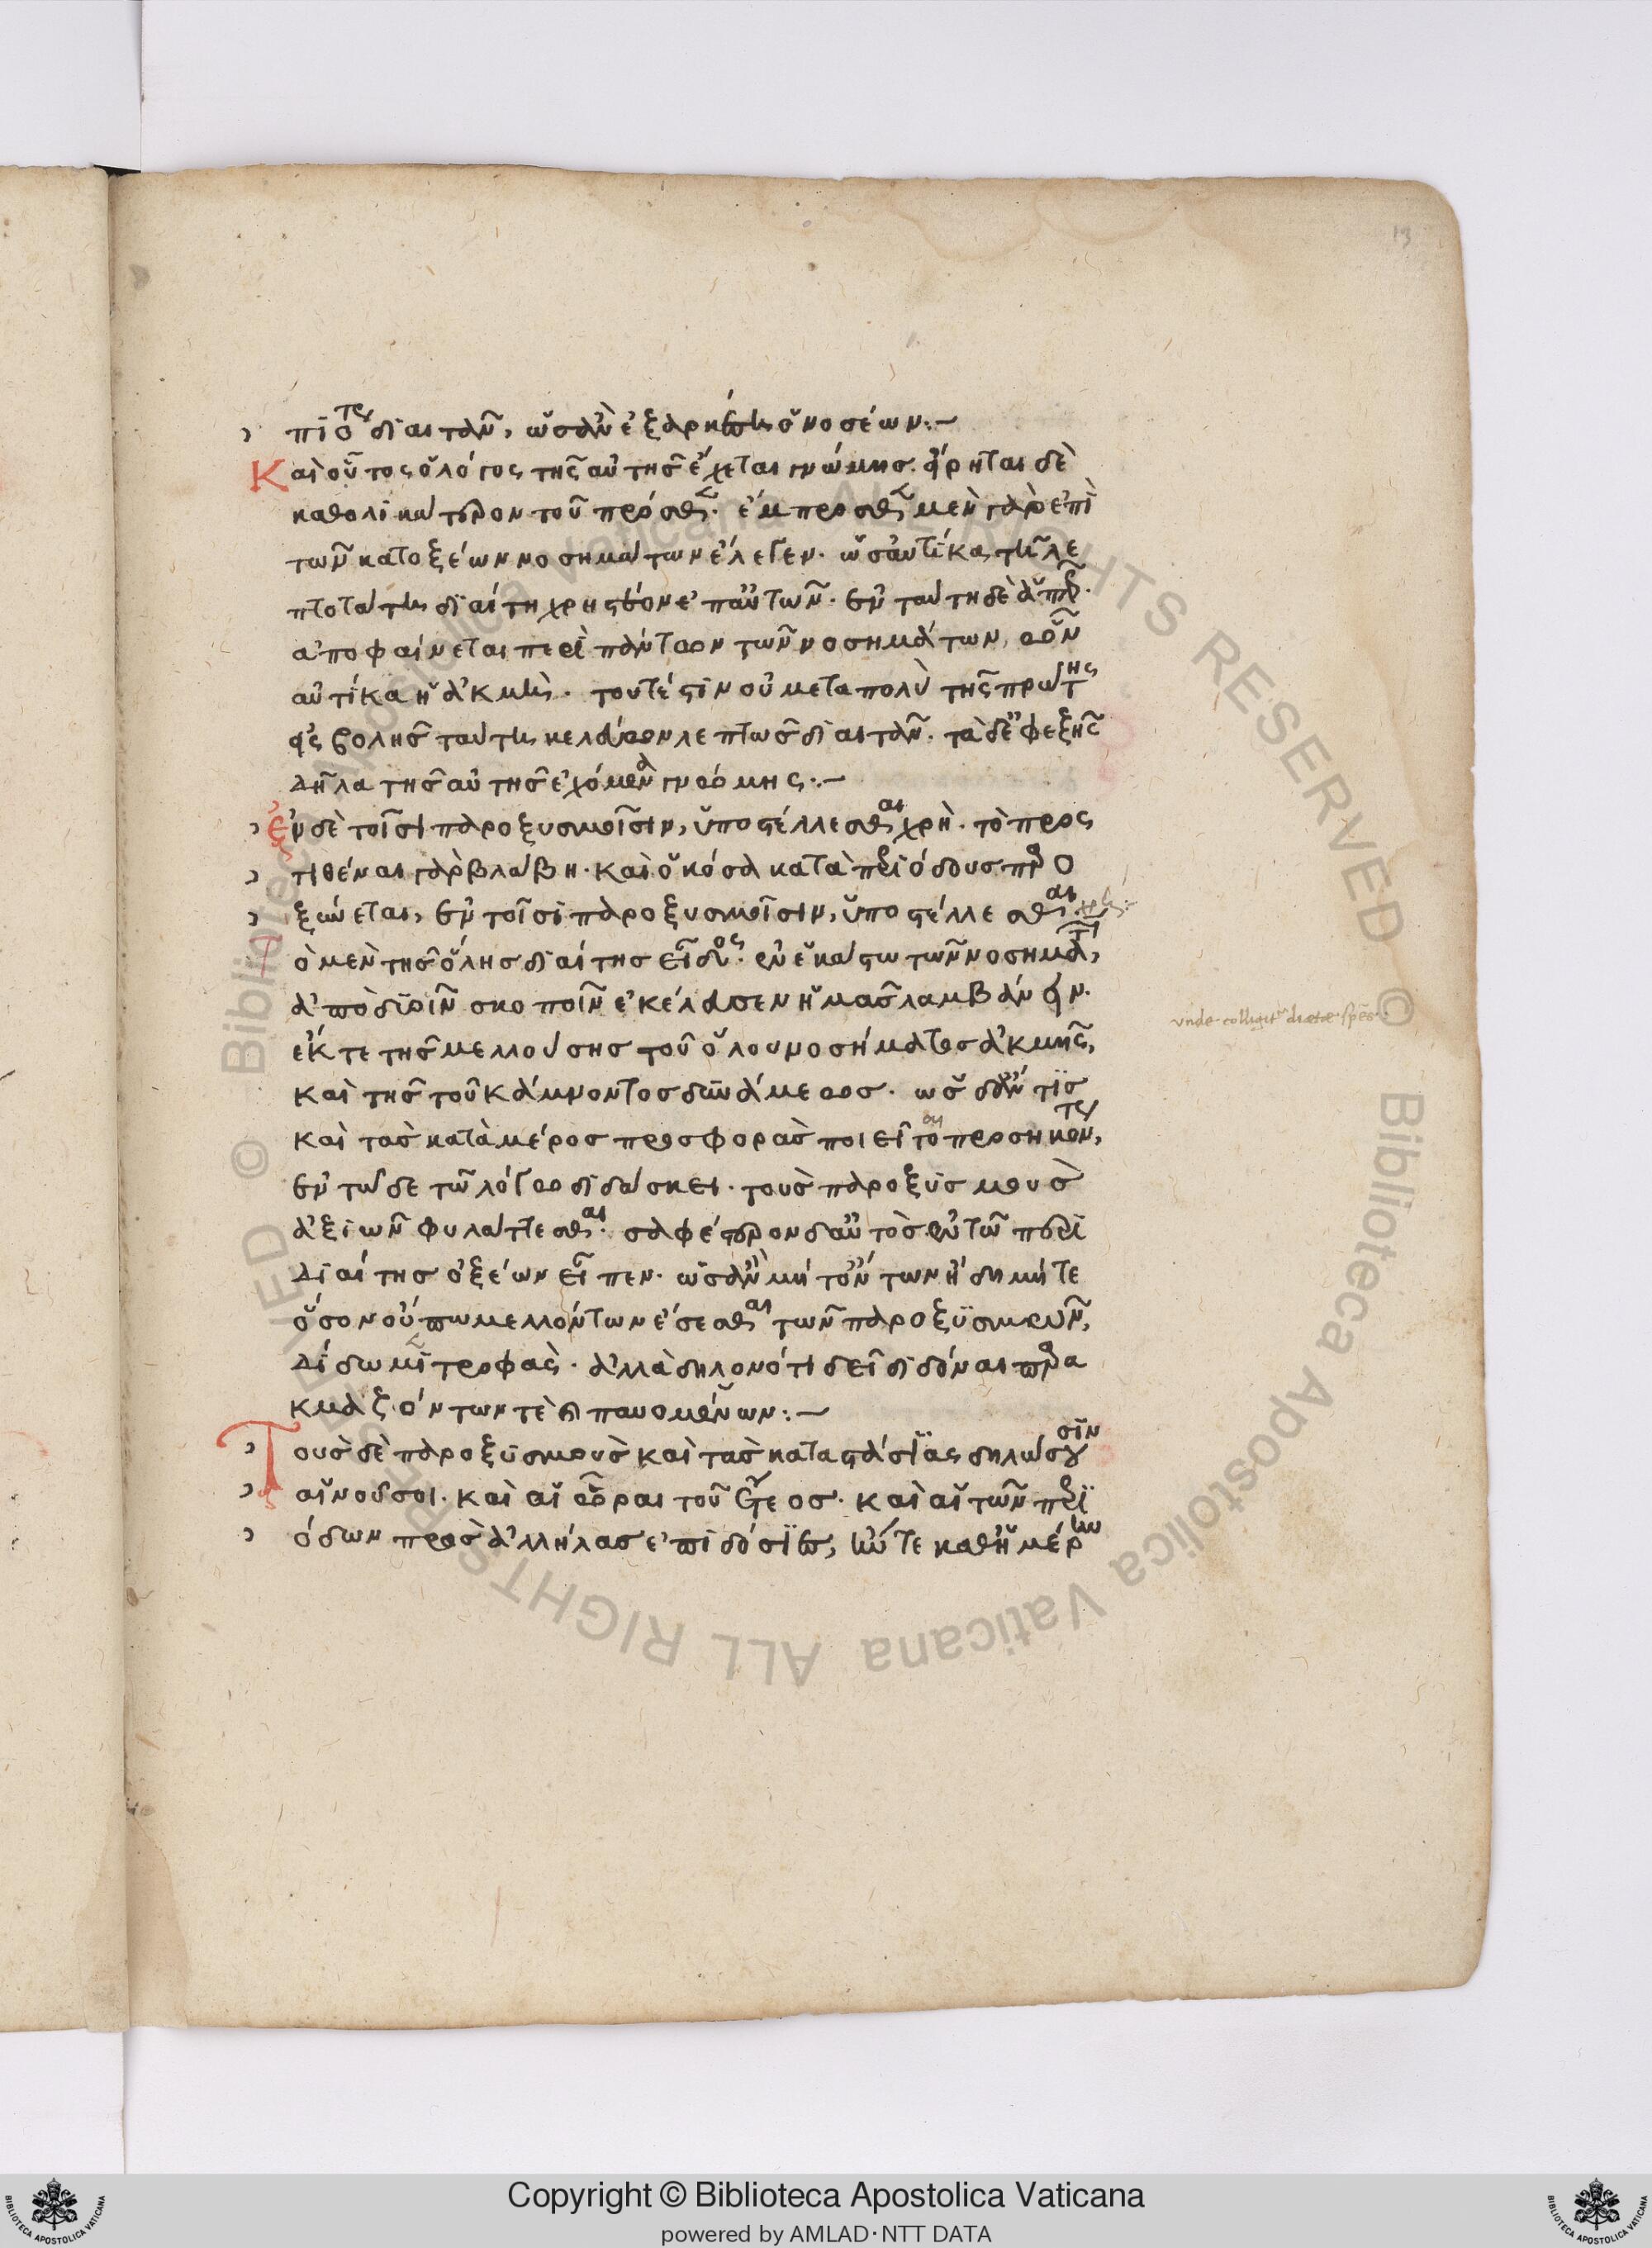 13
πιότερ διαιτᾶν, ὡς ἂν ἐξαρκέσῃ ὁ νοσέων:~
Καὶ οὗτος ὁ λόγος τῆς αὐτῆς ἔχεται γνώμης. εἴρηται δὲ
καθολικώτερον τοῦ πρόσθεν. ἔμπροσθεν μὲν γὰρ ἐπὶ
τῶν κατοξέων νοσημάτων ἔλεγεν. ὡς αὐτίκα τῇ λε
πτοτάτῃ διαίτῃ χρηστέον ἐπ' αὐτῶν. ἐν ταύτῃ δὲ
ἀποφαίνεται περὶ πάντων τῶν νοσημάτων, ὧν
αὐτίκα ἡ ἀκμὴ. τουτέστιν οὐ μετὰ πολὺ τῆς πρώτης
εἰσβολῆς ταύτην κελεύων λεπτῶς διαιτᾶν. τὰ δ' ἐφεξῆς
δῆλα τῆς αὐτῆς ἐχόμενα γνώμης:~
Ἐν δὲ τοῖσι παροξυσμοῖσιν, ὑποστέλλεσθαι χρὴ. τὸ προς
τιθέναι γὰρ βλάβη. καὶ ὁκόσα κατὰ περιόδους παρο
ξύνεται, ἐν τοῖσι παροξυσμοῖσιν, ὑποστέλλεσθαι χρή:
Τὸ μὲν τῆς ὅλης διαίτης εἶδος. ἐν ἑκάστῳ τῶν νοσημάτων,
ἀπὸ δυοῖν σκοποῖν ἐκέλευσεν ἡμᾶς λαμβάνειν.
ἐκ τε τῆς μελλούσης τοῦ ὅλου νοσήματος ἀκμῆς,
καὶ τῆς τοῦ κάμνοντος δυνάμεως. ὡς δ' ἄν τις
καὶ τὰς κατὰ μέρος προσφορὰς ποιεῖτο προσηκόντως,
ἐν τῷδε τῷ λόγῳ διδάσκει. τοὺς παροξυσμοὺς
ἀξιῶν φυλάττεσθαι. σαφέστερον δ' αὐτὸς ἐν τῷ περὶ
διαίτης ὀξέων εἶπεν. ὡς ἂν μήτ' ὄντων ἤδη μήτε
ὅσον οὔπω μελλόντων ἔσεσθαι τῶν παροξυσμῶν,
δίδωμεν τροφὰς. ἀλλὰ δηλονότι δεῖ διδόναι παρα
κμαζόντων τὲ καὶ παυομένων:~
Τοὺς δὲ παροξυσμοὺς καὶ τὰς καταστάσιας δηλώσουσιν
αἱ νοῦσοι. καὶ αἱ ὧραι τοῦ ἔτεος. καὶ αἱ τῶν περι
όδων πρὸς ἀλλήλας ἐπιδόσιες, ἤν τε καθ' ἡμέρην
unde colligitur diaetae species
Copyright © Biblioteca Apostolica Vaticana
powered by AMLAD·NTT DATA